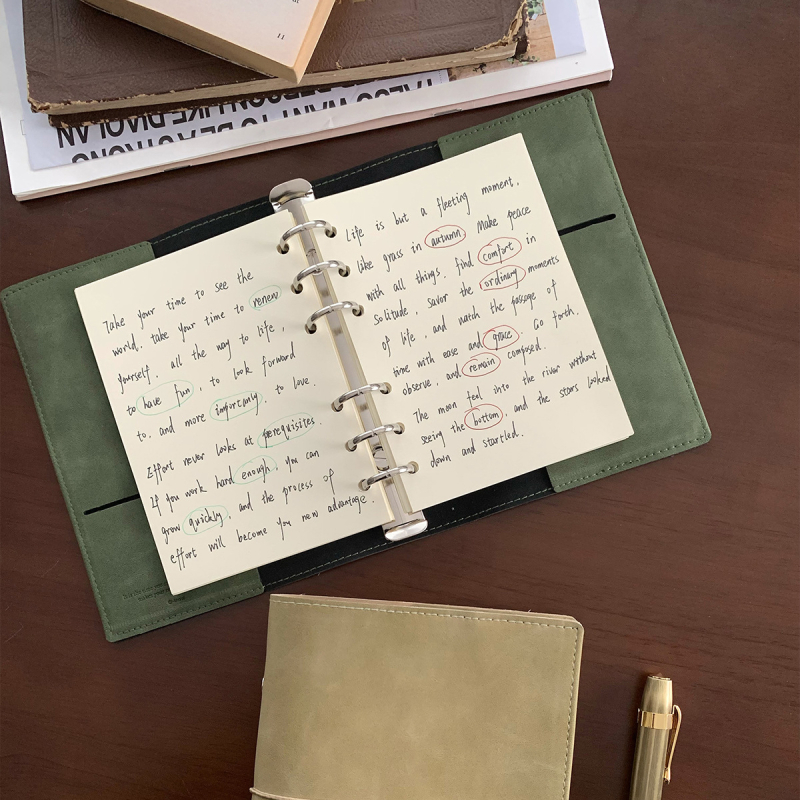 11
I ALSO WANT TO BE A STRONG
PERSON LIKE
Take your time to see the
world, take your time to renew
yourself, all the way to life,
to have fun, to look forward
to, and more importanly, to love.
Effort never looks at perequisites.
If you work hard enough, you can
grow quickly, and the process of
effort will become you new advantage.
Life is but a fleeting moment,
like grass in autumn. Make peace
with all things, find comfort in
Solitude, savor the ordinary moments
of life, and watch the passage of
time with ease and grace. Go forth,
observe, and remain composed.
The moon feel into the river without
seeing the bottom, and the stars looked
down and startled.